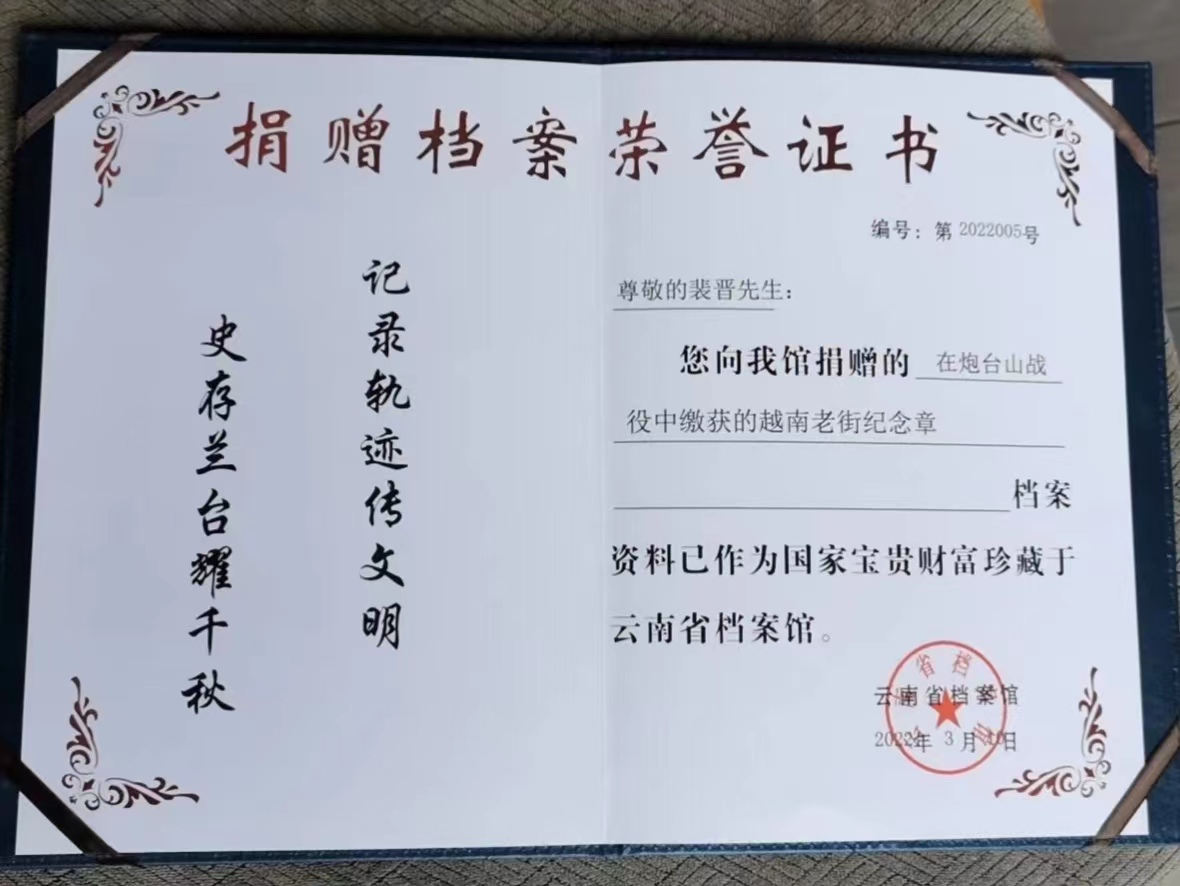 捐赠档案荣誉证书
记录轨迹传文明
史存兰台耀千秋
编号：第2022005号
尊敬的裴晋先生：
您向我馆捐赠的 在炮台山战
役中缴获的越南老街纪念章
档案
资料已作为国家宝贵财富珍藏于
云南省档案馆。
云南省档案馆
2022年3月 日